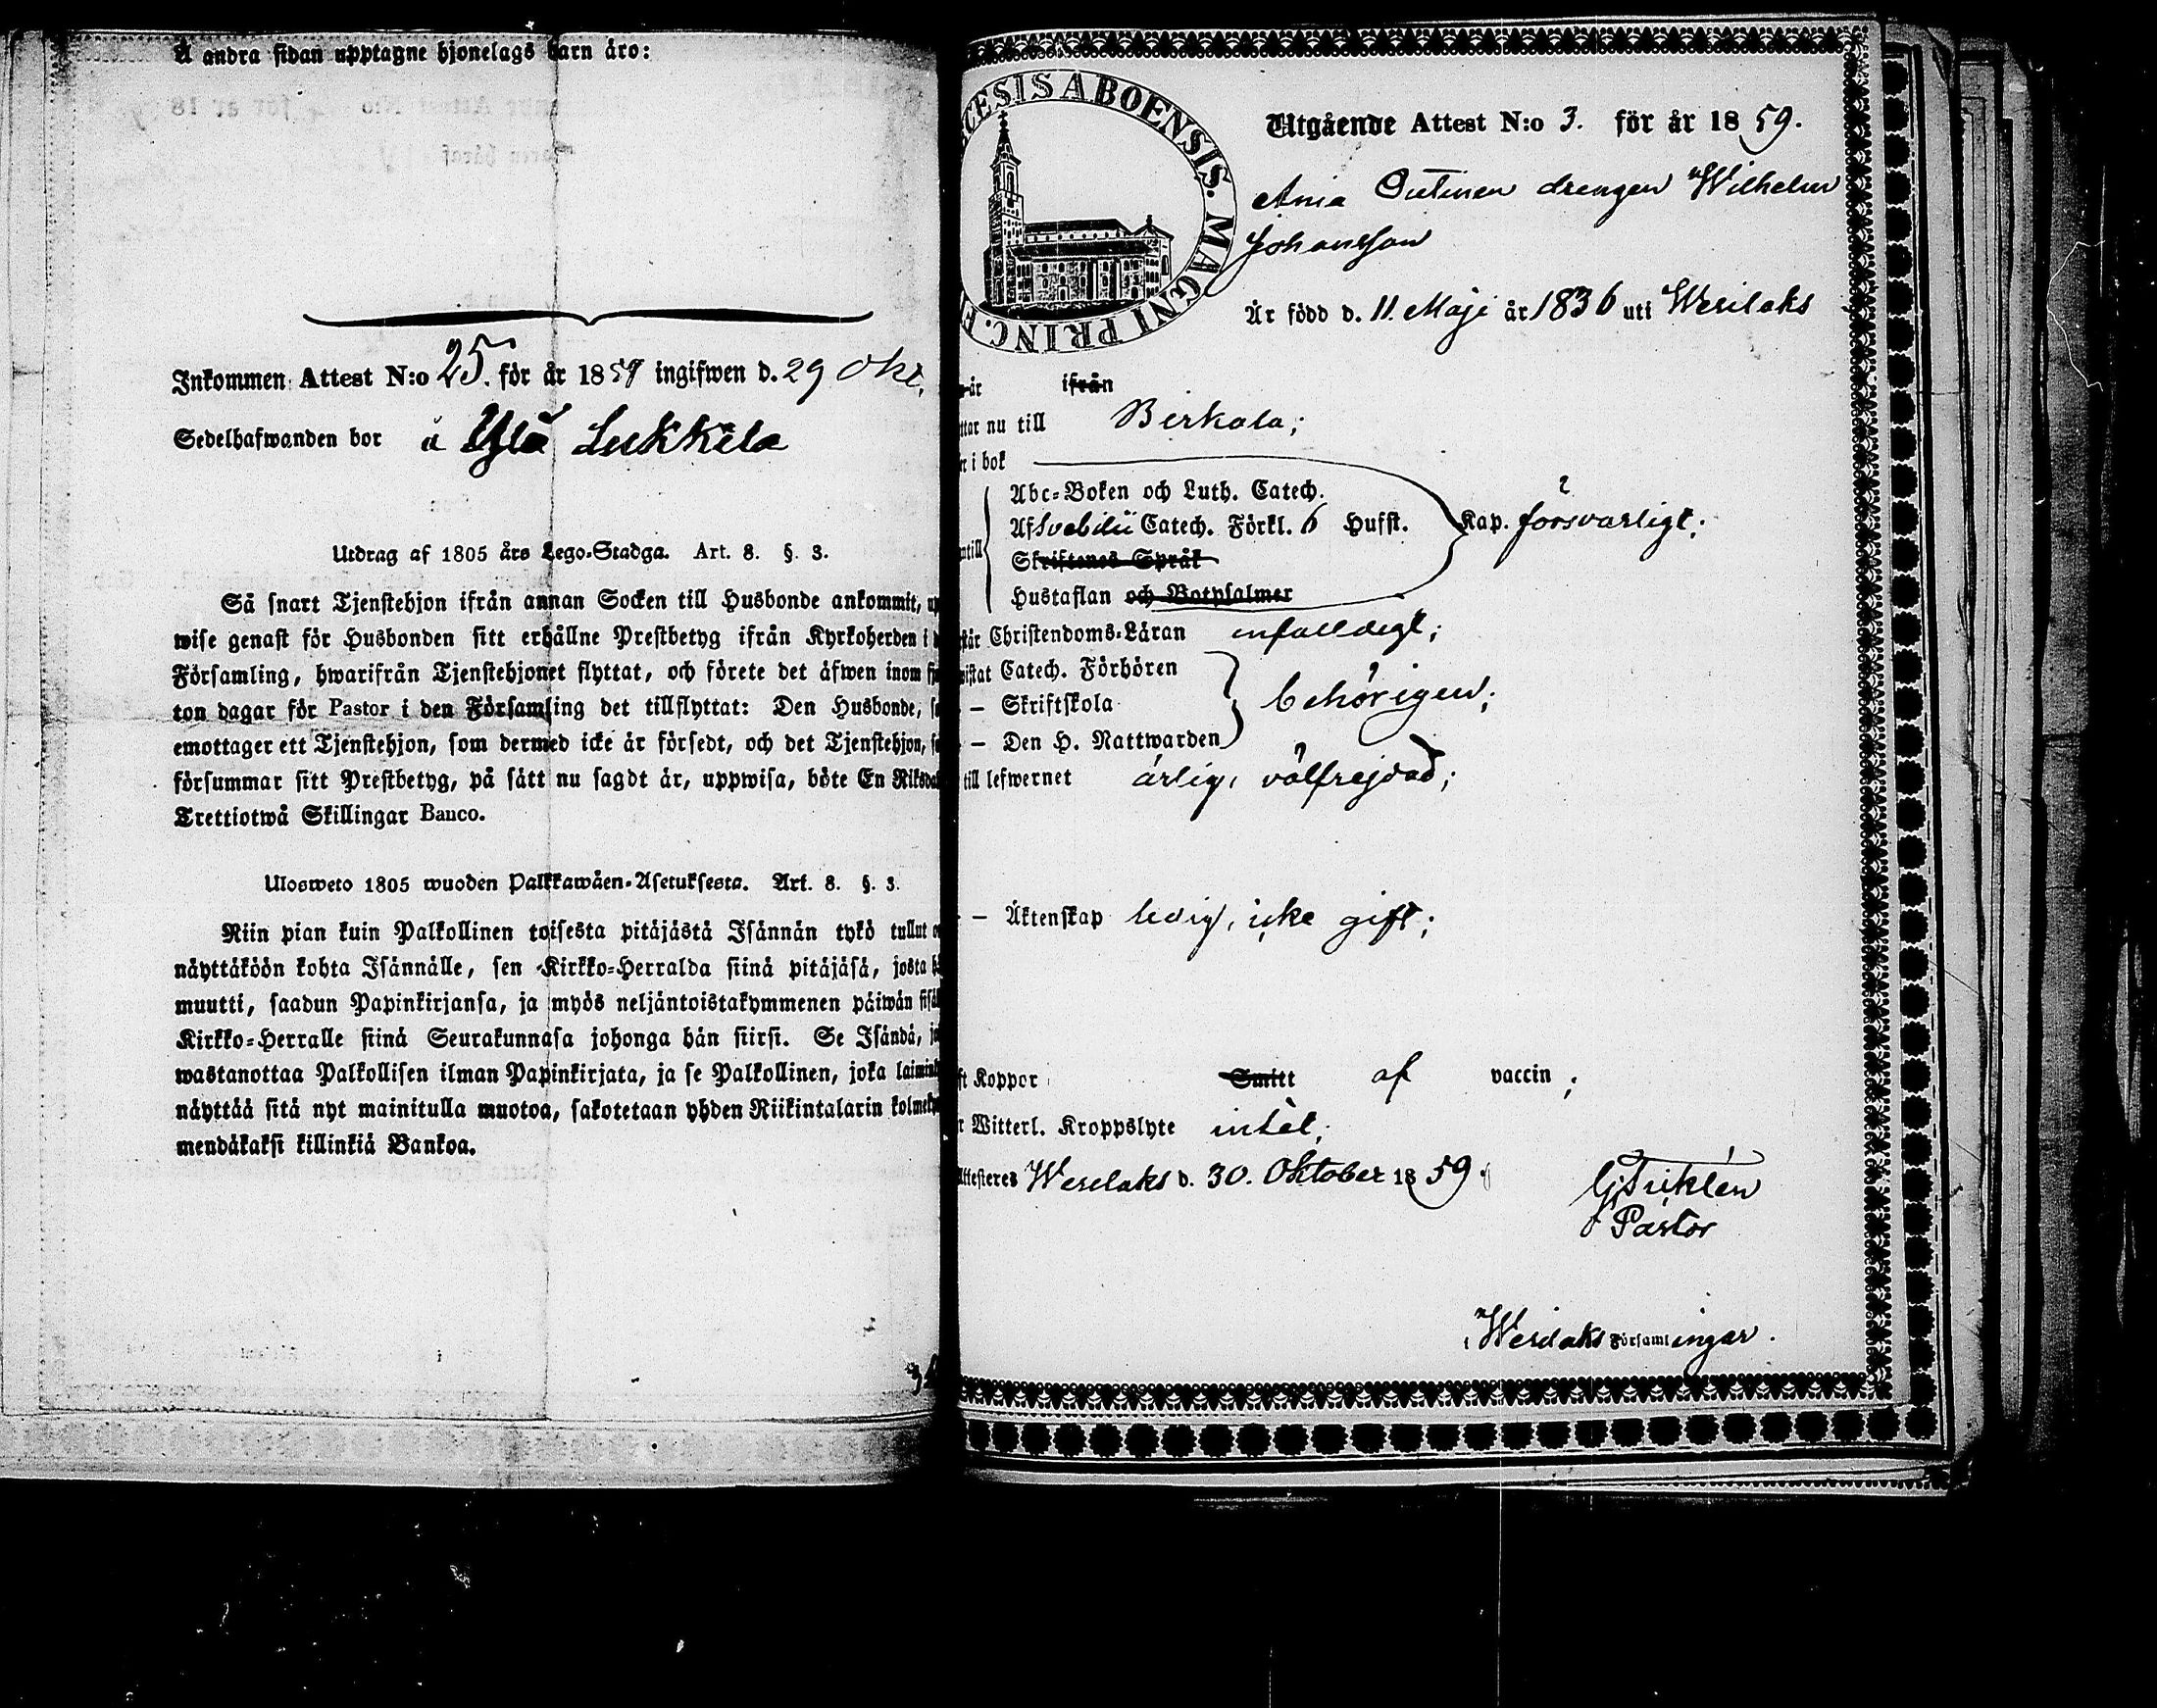 Å andra sidan upptagne hjonelags barn äro:
Inkommen Attest N:o 25. för år 1859 ingifwen d. 29 Okt.
Sedelhafwanden bor å Ylä Lukkila
Utdrag af 1805 års Lego-Stadga. Art. 8. §. 3.
Så snart Tjenstehjon ifrån annan Socken till Husbonde ankommit, up
wise genast för Husbonden sitt erhållne Prestbetyg ifrån Kyrkoherden i
Församling, hwarifrån Tjenstehjonet flyttat, och förete det äfwen inom
ton dagar för Pastor i den Församling det tillflyttat: Den Husbonde,
emottager ett Tjenstehjon, som dermed icke är försedt, och det Tjenstehjon,
försummar sitt Prestbetyg, på sätt nu sagdt är, uppwisa, böte En Riksdal
Trettiotwå Skillingar Banco.
Ulosweto 1805 wuoden Palkkawäen-Asetuksesta. Art. 8. §. 3.
Niin pian kuin Palkollinen toisesta pitäjästä Isännän tykö tullut
näyttäköön kohta Isännälle, sen Kirkko-Herralda siinä pitäjäsä, josta
muutti, saadun Papinkirjansa, ja myös neljäntoistakymmenen päiwän sisäl
Kirkko-Herralle siinä Seurakunnasa johonga hän siirsi. Se Isändä,
wastanottaa Palkollisen ilman Papinkirjata, ja se Palkollinen, joka laimin
näyttää sitä nyt mainitulla muotoa, sakotetaan yhden Riikintalarin kolme
mendäkaksi killinkiä Bankoa.
CESIS ABOENSIS. MAGNI PRINC. F
Utgående Attest N:o 3. för år 1859.
Ania drengen Wilhelm
Johansson
Är född d. 11. Maji år 1836 uti Wesilaks
år ifrån
ttar nu till Birkala;
r i bok
Abc-Boken och Luth. Catech.
Af Svebilii Catech. Förkl. 6 Hufst. Kap. försvarligt;
ntill
Skriftenes Språk
Hustaflan och Botpsalmer
står Christendoms-Läran enfaldigt;
wistat Catech. Förhören
— Skriftskola behörigen;
— Den H. Nattwarden
till lefwernet ärlig, välfrejdad;
— Äktenskap ledig, icke gift;
ft Koppor Smitt af vaccin;
r Witterl. Kroppslyte intet;
Attesteres Wesilaks d. 30. Oktober 1859.
Pastor
i Wesilaks Församlingar.